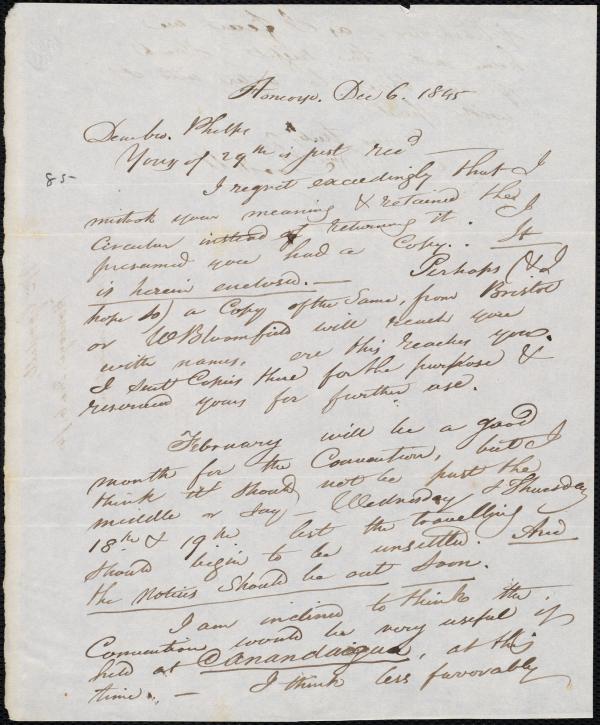 Honeoye. Dec 6. 1845
Dear bro. Phelps
Yours of 29th is just recd
85-
I regret exceedingly that I
mistook your meaning & retained the
Circular instead of returning it. I
presumed you had a Copy. It
is herein enclosed. — Perhaps (& I
hope so) a Copy of the Same, from Bristol
or W Bloomfield will reach you
with names, ere this reaches you.
I sent Copies there for the purpose &
reserved yours for further use.
February will be a good
month for the Convention, but I
think it should not be past the
middle or say — Wednesday & Thursday
18th & 19th lest the travelling
should begin to be unsettled. And
the notices should be out soon.
I am inclined to think the
Convention would be very useful if
held at Canandaigua, at this
time. — I think less favorably